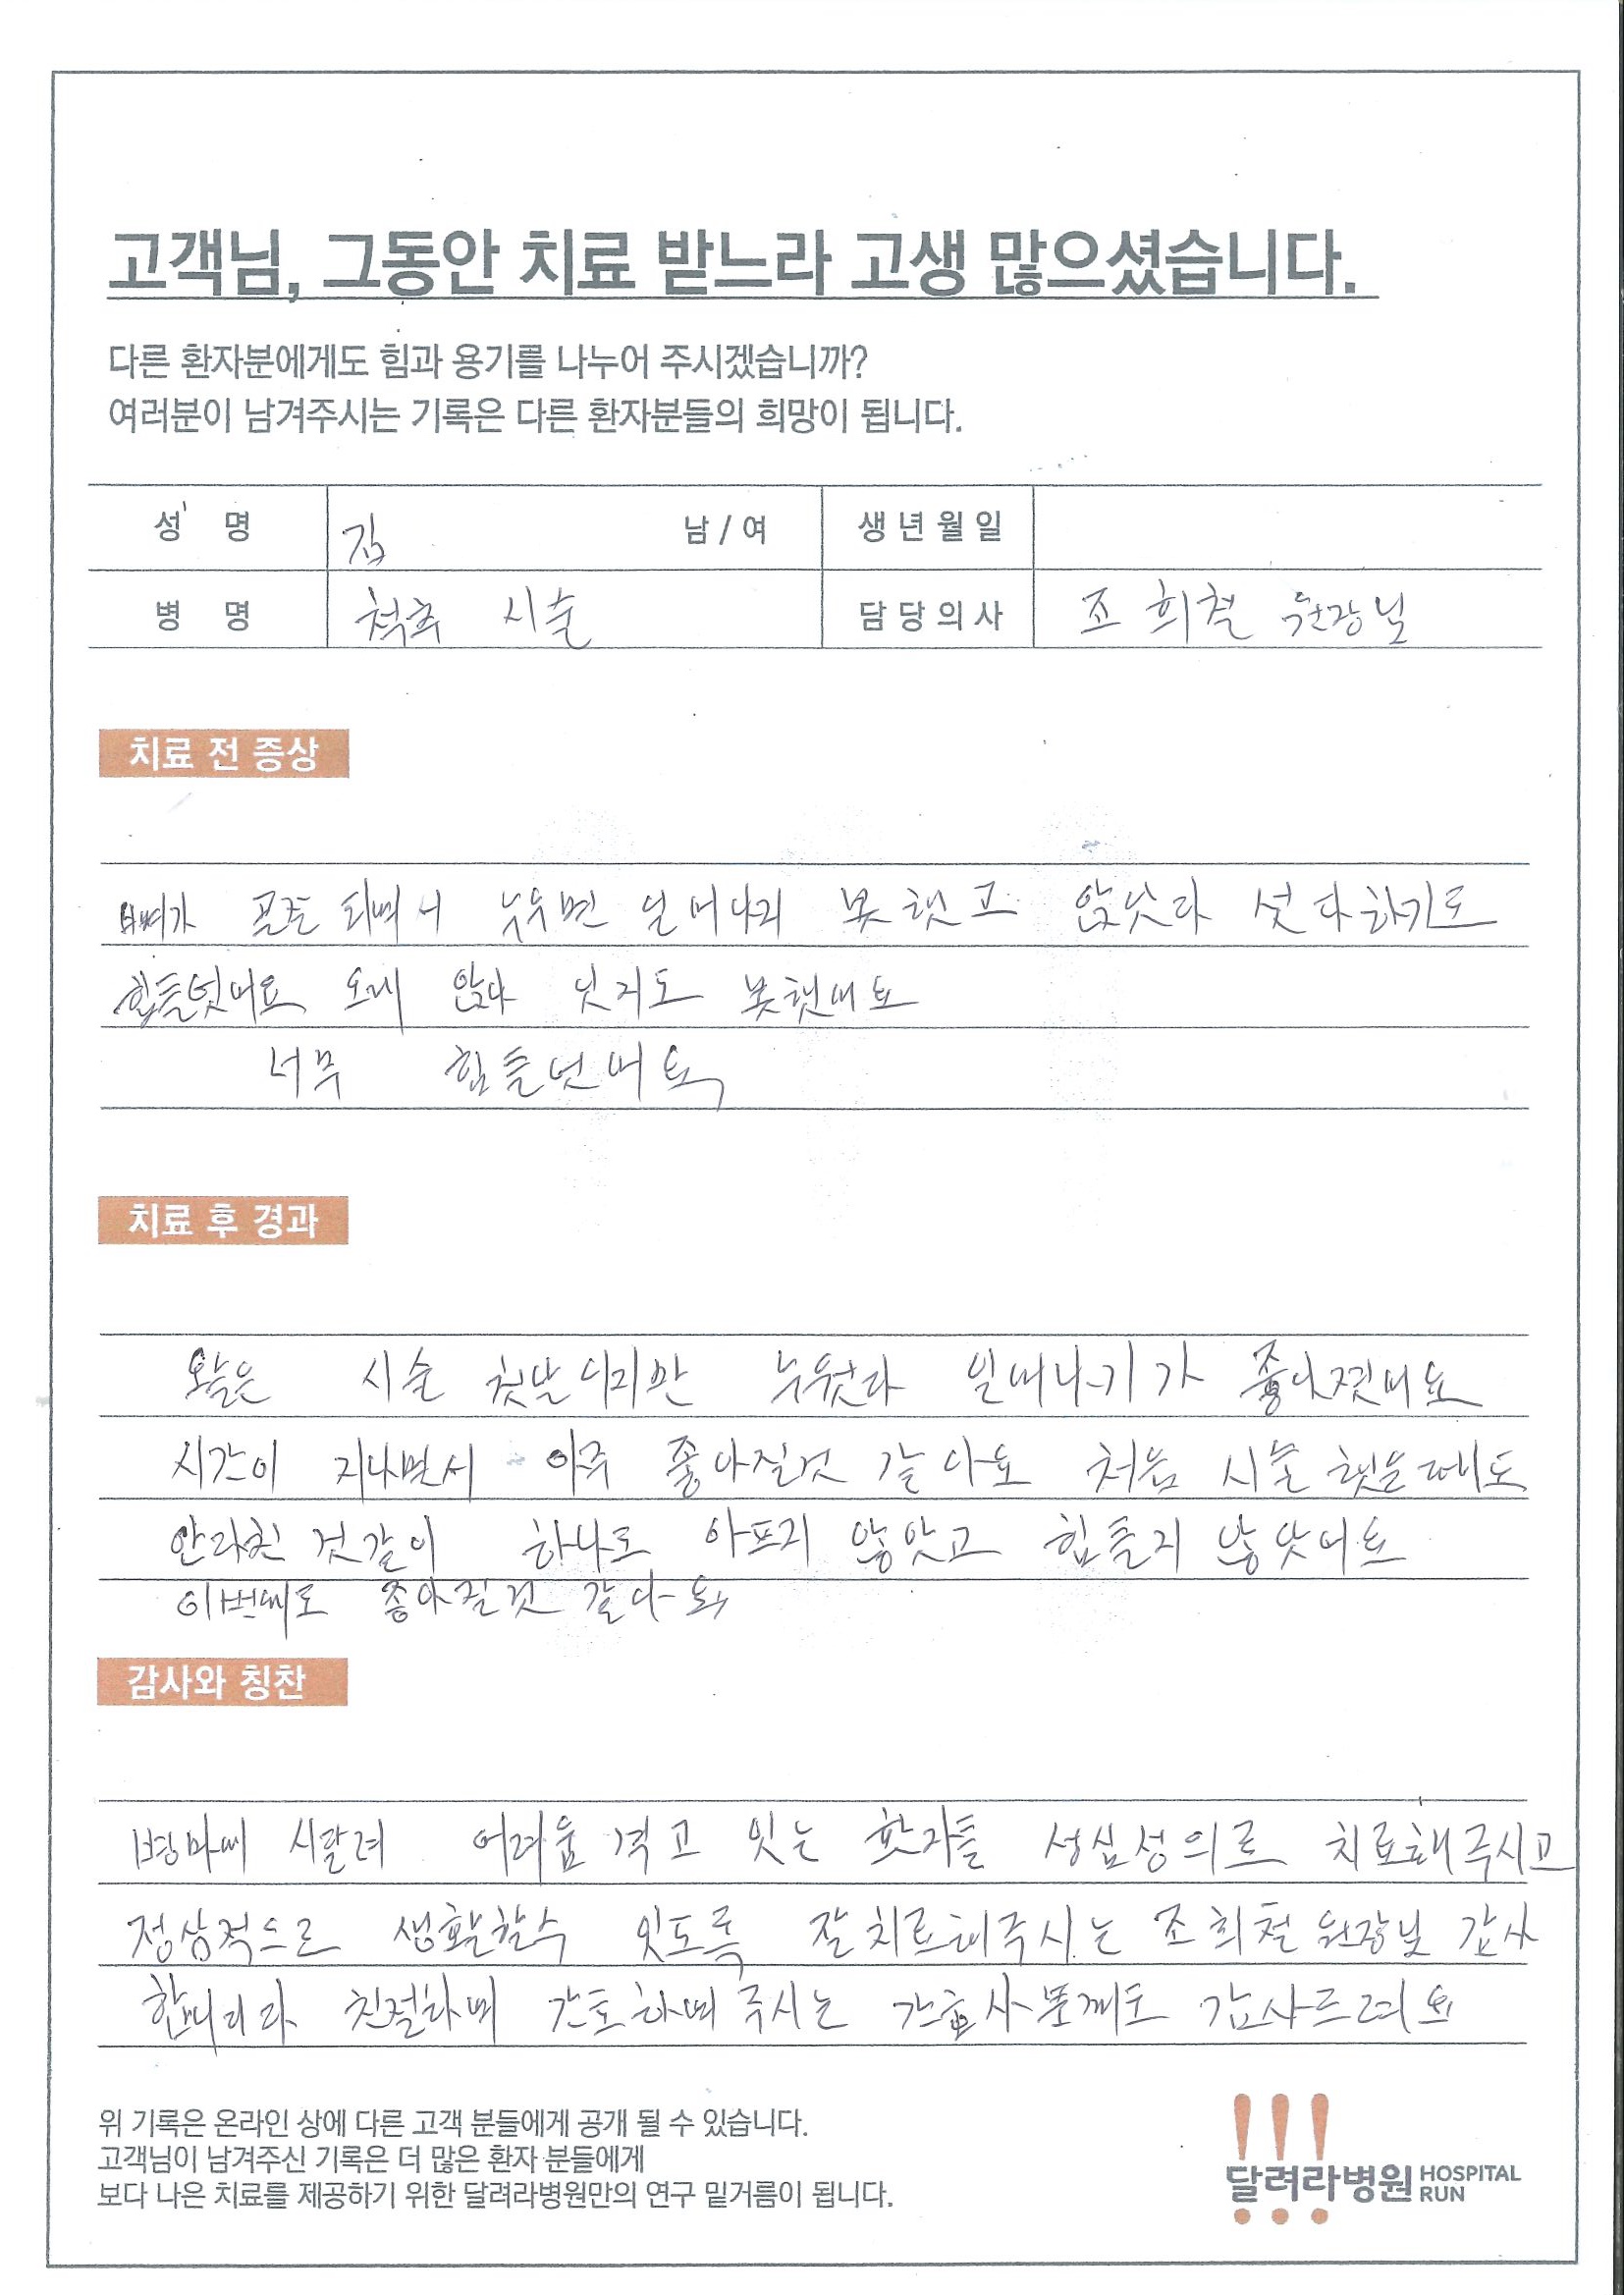 고객님, 그동안 치료 받느라 고생 많으셨습니다.
다른 환자분에게도 힘과 용기를 나누어 주시겠습니까?
여러분이 남겨주시는 기록은 다른 환자분들의 희망이 됩니다.
성 명 김 남 / 여 생년월일
병 명 척추 시술 담당의사 조희철 원장님
치료 전 증상
뼈가 골절 되여서 누우면 일어나지 못했고 앉앗다 섯다하기도
힘들엇어요 오래 앉아 잇지도 못했어요
너무 힘들엇어요,
치료 후 경과
오늘은 시술 첫날이지만 누웠다 일어나기가 좋아졋어요
시간이 지나면서 아주 좋아질것 같아요 처음 시술 했을때도
안라친 것같이 하나도 아프지 않앗고 힘들지 않앗어요
이번에도 좋아질것 같아요,
감사와 칭찬
병마에 시달려 어려움 격고 잇는 환자들 성심성의로 치료해주시고
정상적으로 생활할수 잇도록 잘치료해주시는 조희철 원장님 감사
합니다 친절하며 간호하여주시는 간호사분께도 감사드려요
위 기록은 온라인 상에 다른 고객 분들에게 공개 될 수 있습니다.
고객님이 남겨주신 기록은 더 많은 환자 분들에게
보다 나은 치료를 제공하기 위한 달려라병원만의 연구 밑거름이 됩니다.
달려라병원 HOSPITAL RUN